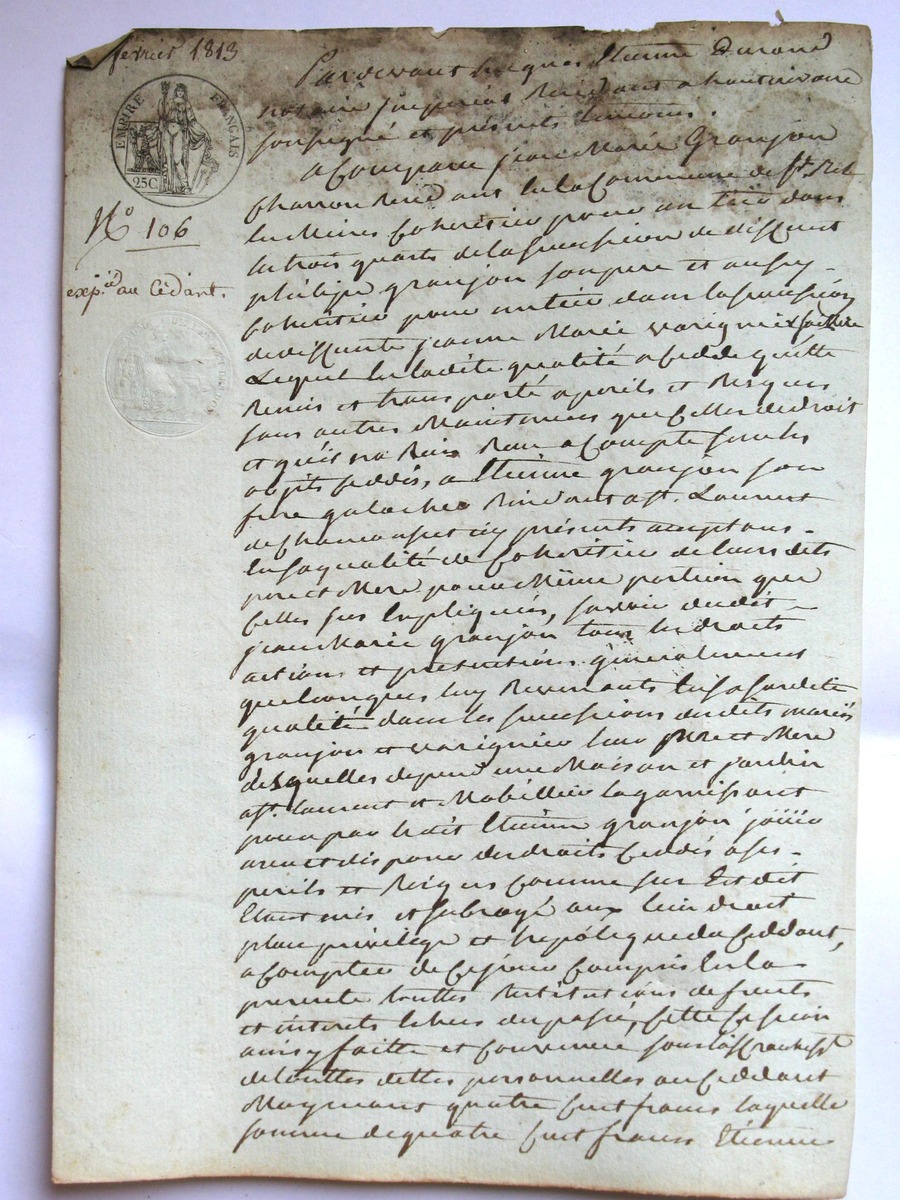 fevrier 1813
EMPIRE FRANÇAIS
25C
N° 106
exp.ié au Cédant.
Pardevant Jacques Etienne Durand
notaire imperial Residant a hauterivoire
soussigné et présents temoins.
a Comparu jean Marie Granjon
Charron Resident en la Commune de St.
les Mines Coheritier pour un tiers dans
les trois quarts de la succession de deffunt
philippe granjon son pere et aussy
Coheritier pour un tiers dans la succession
de deffunte jeanne Marie varignier sa Mere
Lequel en la dite qualité a cedde quitte
Remis et transporté a perils et Risques
sans autres Maintenues que Celles de droit
et qu'il n'a Rien Reçu a Compte sur les
objets ceddés, a Etienne granjon son
frere galocher Residant a St. Laurent
de Chamousset icy présent acceptant
en sa qualité de Coheritier de leurs dits
pere et Mere pour même portion que
Celles sus Expliquées, savoir du dit
jean Marie granjon tous les droits
actions et pretentions généralement
quelconques luy Revenants en sa susdite
qualité dans les successions desdits mariés
granjon et varignier leur pere et Mere
desquelles depend une Maison et jardin
a St. laurent et Mobillier la garnissant
pour par ledit Etienne granjon joüir
user et disposer des droits ceddés a ses
perils et Risques Comme sus Est dit
Etant mis et subrogé aux lieu droit
place privilege et hepóteque du Ceddant,
a Compter de Ce jour Compris En la
presente touttes Restitutions de fruits
et interets Echus du passé, Cette Cession
ainsy faitte et Convenue sous
de touttes dettes personnelles au Ceddant
Moyenant quatre Cent francs laquelle
somme de quatre Cent francs Etienne